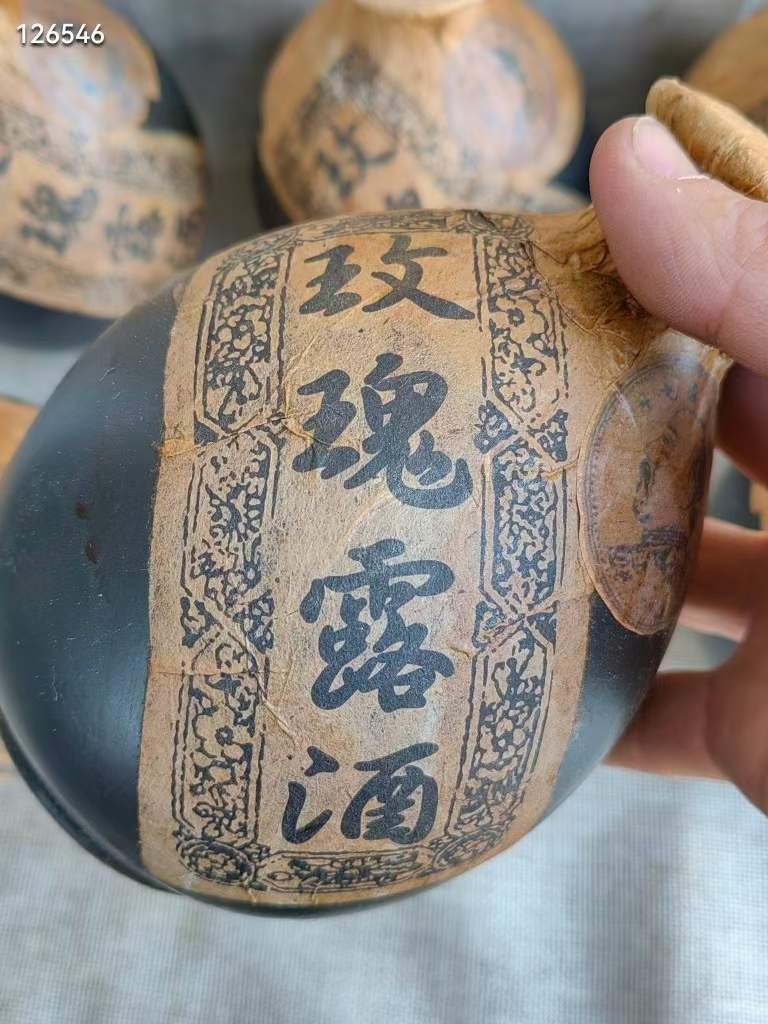 126546
玫
瑰
露
酒
玫